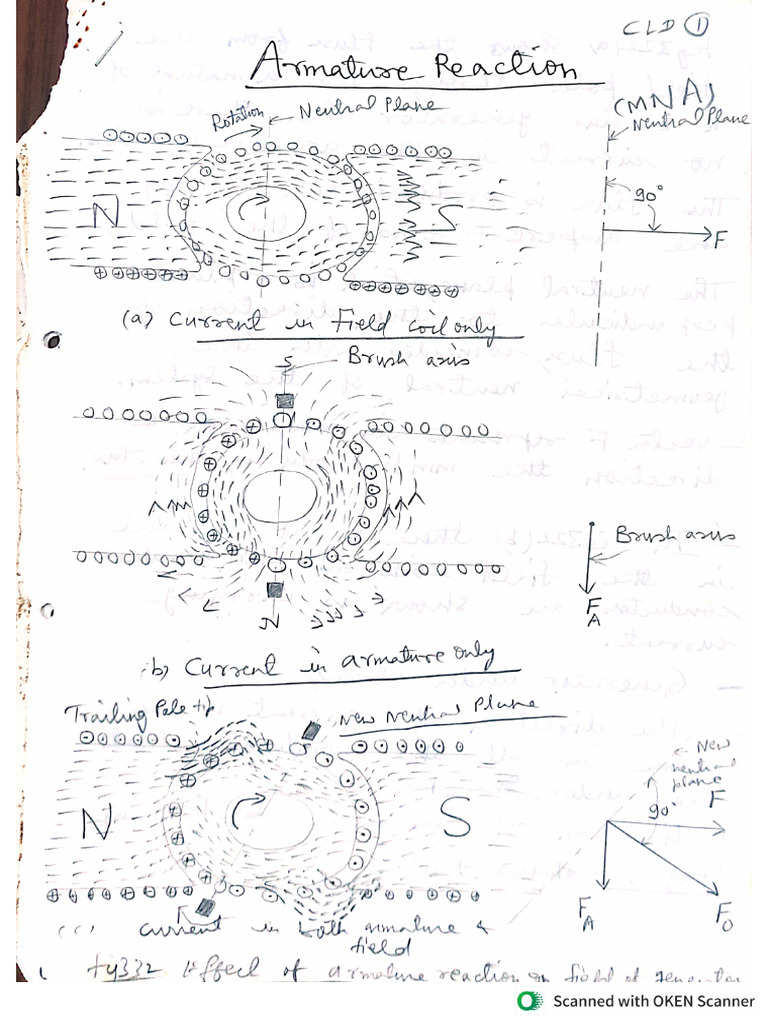 CLD ①
Armature Reaction
(MNA)
Rotation
Neutral Plane
Neutral Plane
90°
N
S
F
(a) Current in Field coil only
S
Brush axis
Brush axis
F
A
N
(b) Current in armature only
Trailing Pole tip
New Neutral Plane
New
neutral
plane
F
90°
N
S
F
A
F
O
(c) Current in both armature &
field
Effect of armature reaction on field of generator
Scanned with OKEN Scanner